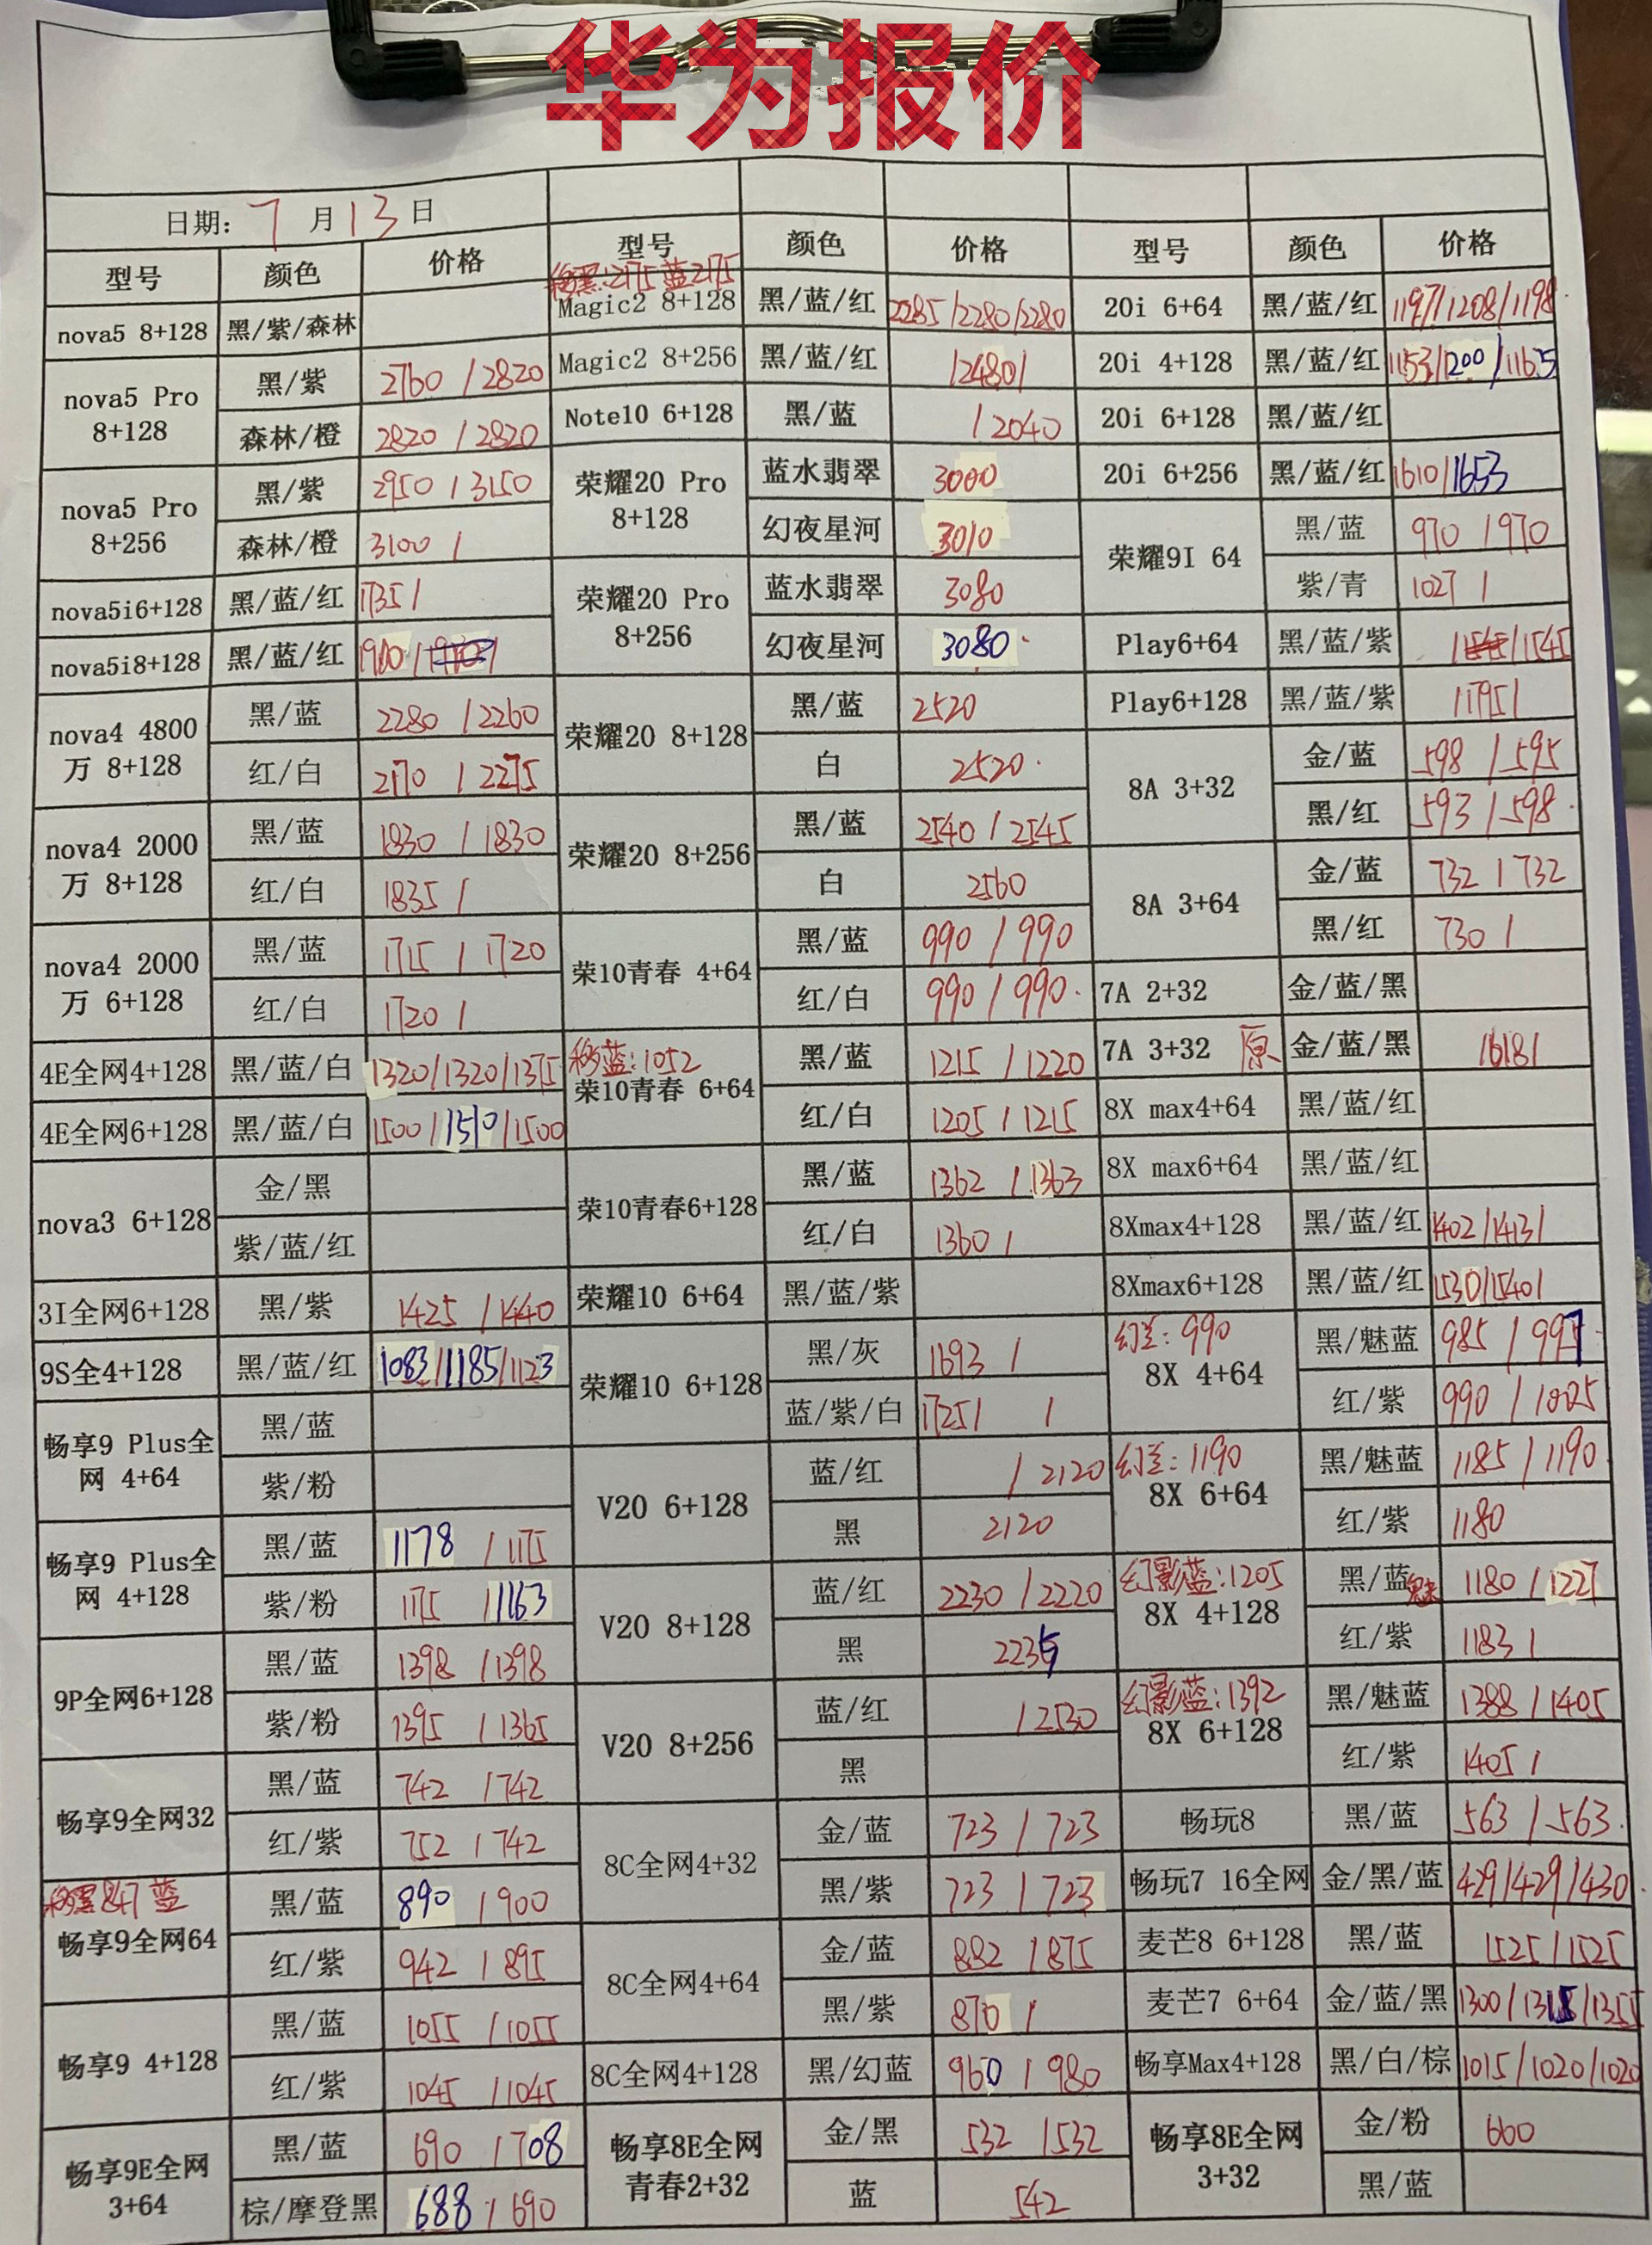 华为报价
日期: 7 月 13 日
型号 颜色 价格 型号 颜色 价格 型号 颜色 价格
nova5 8+128 黑/紫/森林
nova5 Pro 8+128 黑/紫 2760 / 2820
森林/橙 2820 / 2820
nova5 Pro 8+256 黑/紫 2950 / 3150
森林/橙 3100 /
nova5i6+128 黑/蓝/红 1735 /
nova5i8+128 黑/蓝/红 1900 /
nova4 4800万 8+128 黑/蓝 2280 / 2260
红/白 2170 / 2275
nova4 2000万 8+128 黑/蓝 1830 / 1830
红/白 1835 /
nova4 2000万 6+128 黑/蓝 1715 / 1720
红/白 1720 /
4E全网4+128 黑/蓝/白 1320/1320/1375
4E全网6+128 黑/蓝/白 1500/1510/1500
nova3 6+128 金/黑
紫/蓝/红
3I全网6+128 黑/紫 1425 / 1440
9S全4+128 黑/蓝/红 1083/1185/1123
畅享9 Plus全网 4+64 黑/蓝
紫/粉
畅享9 Plus全网 4+128 黑/蓝 1178 / 1175
紫/粉 1175 / 1163
9P全网6+128 黑/蓝 1398 / 1398
紫/粉 1395 / 1365
畅享9全网32 黑/蓝 742 / 742
红/紫 752 / 742
移黑847 蓝
畅享9全网64 黑/蓝 890 / 900
红/紫 942 / 895
畅享9 4+128 黑/蓝 1055 / 1055
红/紫 1045 / 1045
畅享9E全网 3+64 黑/蓝 690 / 708
棕/摩登黑 688 / 690
移黑:2175 蓝2175
Magic2 8+128 黑/蓝/红 2285/2280/2280
Magic2 8+256 黑/蓝/红 /2480/
Note10 6+128 黑/蓝 / 2040
荣耀20 Pro 8+128 蓝水翡翠 3000
幻夜星河 3010
荣耀20 Pro 8+256 蓝水翡翠 3080
幻夜星河 3080
荣耀20 8+128 黑/蓝 2520
白 2520
荣耀20 8+256 黑/蓝 2540 / 2545
白 2560
荣10青春 4+64 黑/蓝 990 / 990
红/白 990 / 990
移蓝:1052
荣10青春 6+64 黑/蓝 1215 / 1220
红/白 1205 / 1215
荣10青春6+128 黑/蓝 1362 / 1363
红/白 1360 /
荣耀10 6+64 黑/蓝/紫
荣耀10 6+128 黑/灰 1693 /
蓝/紫/白 1725/ /
V20 6+128 蓝/红 / 2120
黑 2120
V20 8+128 蓝/红 2230 / 2220
黑 2235
V20 8+256 蓝/红 / 2530
黑
8C全网4+32 金/蓝 723 / 723
黑/紫 723 / 723
8C全网4+64 金/蓝 882 / 875
黑/紫 870 /
8C全网4+128 黑/幻蓝 960 / 980
畅享8E全网青春2+32 金/黑 532 / 532
蓝 542
20i 6+64 黑/蓝/红 1197/1208/1198
20i 4+128 黑/蓝/红 1153/1200/1165
20i 6+128 黑/蓝/红
20i 6+256 黑/蓝/红 1610/1653
荣耀9I 64 黑/蓝 970 / 970
紫/青 1027 /
Play6+64 黑/蓝/紫 /1545
Play6+128 黑/蓝/紫 /1795/
8A 3+32 金/蓝 598 / 595
黑/红 593 / 598
8A 3+64 金/蓝 732 / 732
黑/红 730 /
7A 2+32 金/蓝/黑
7A 3+32 原 金/蓝/黑 /618/
8X max4+64 黑/蓝/红
8X max6+64 黑/蓝/红
8Xmax4+128 黑/蓝/红 1402/1413/
8Xmax6+128 黑/蓝/红 1530/1540/
幻兰: 990
8X 4+64 黑/魅蓝 985 / 997
红/紫 990 / 1005
幻兰: 1190
8X 6+64 黑/魅蓝 1185 / 1190
红/紫 1180
幻影蓝:1205
8X 4+128 黑/蓝魅 1180 / 1227
红/紫 1183 /
幻影蓝:1392
8X 6+128 黑/魅蓝 1388 / 1405
红/紫 1405 /
畅玩8 黑/蓝 563 / 563
畅玩7 16全网 金/黑/蓝 429/429/430
麦芒8 6+128 黑/蓝 1525/1525
麦芒7 6+64 金/蓝/黑 1300/1315/1355
畅享Max4+128 黑/白/棕 1015/1020/1020
畅享8E全网 3+32 金/粉 660
黑/蓝